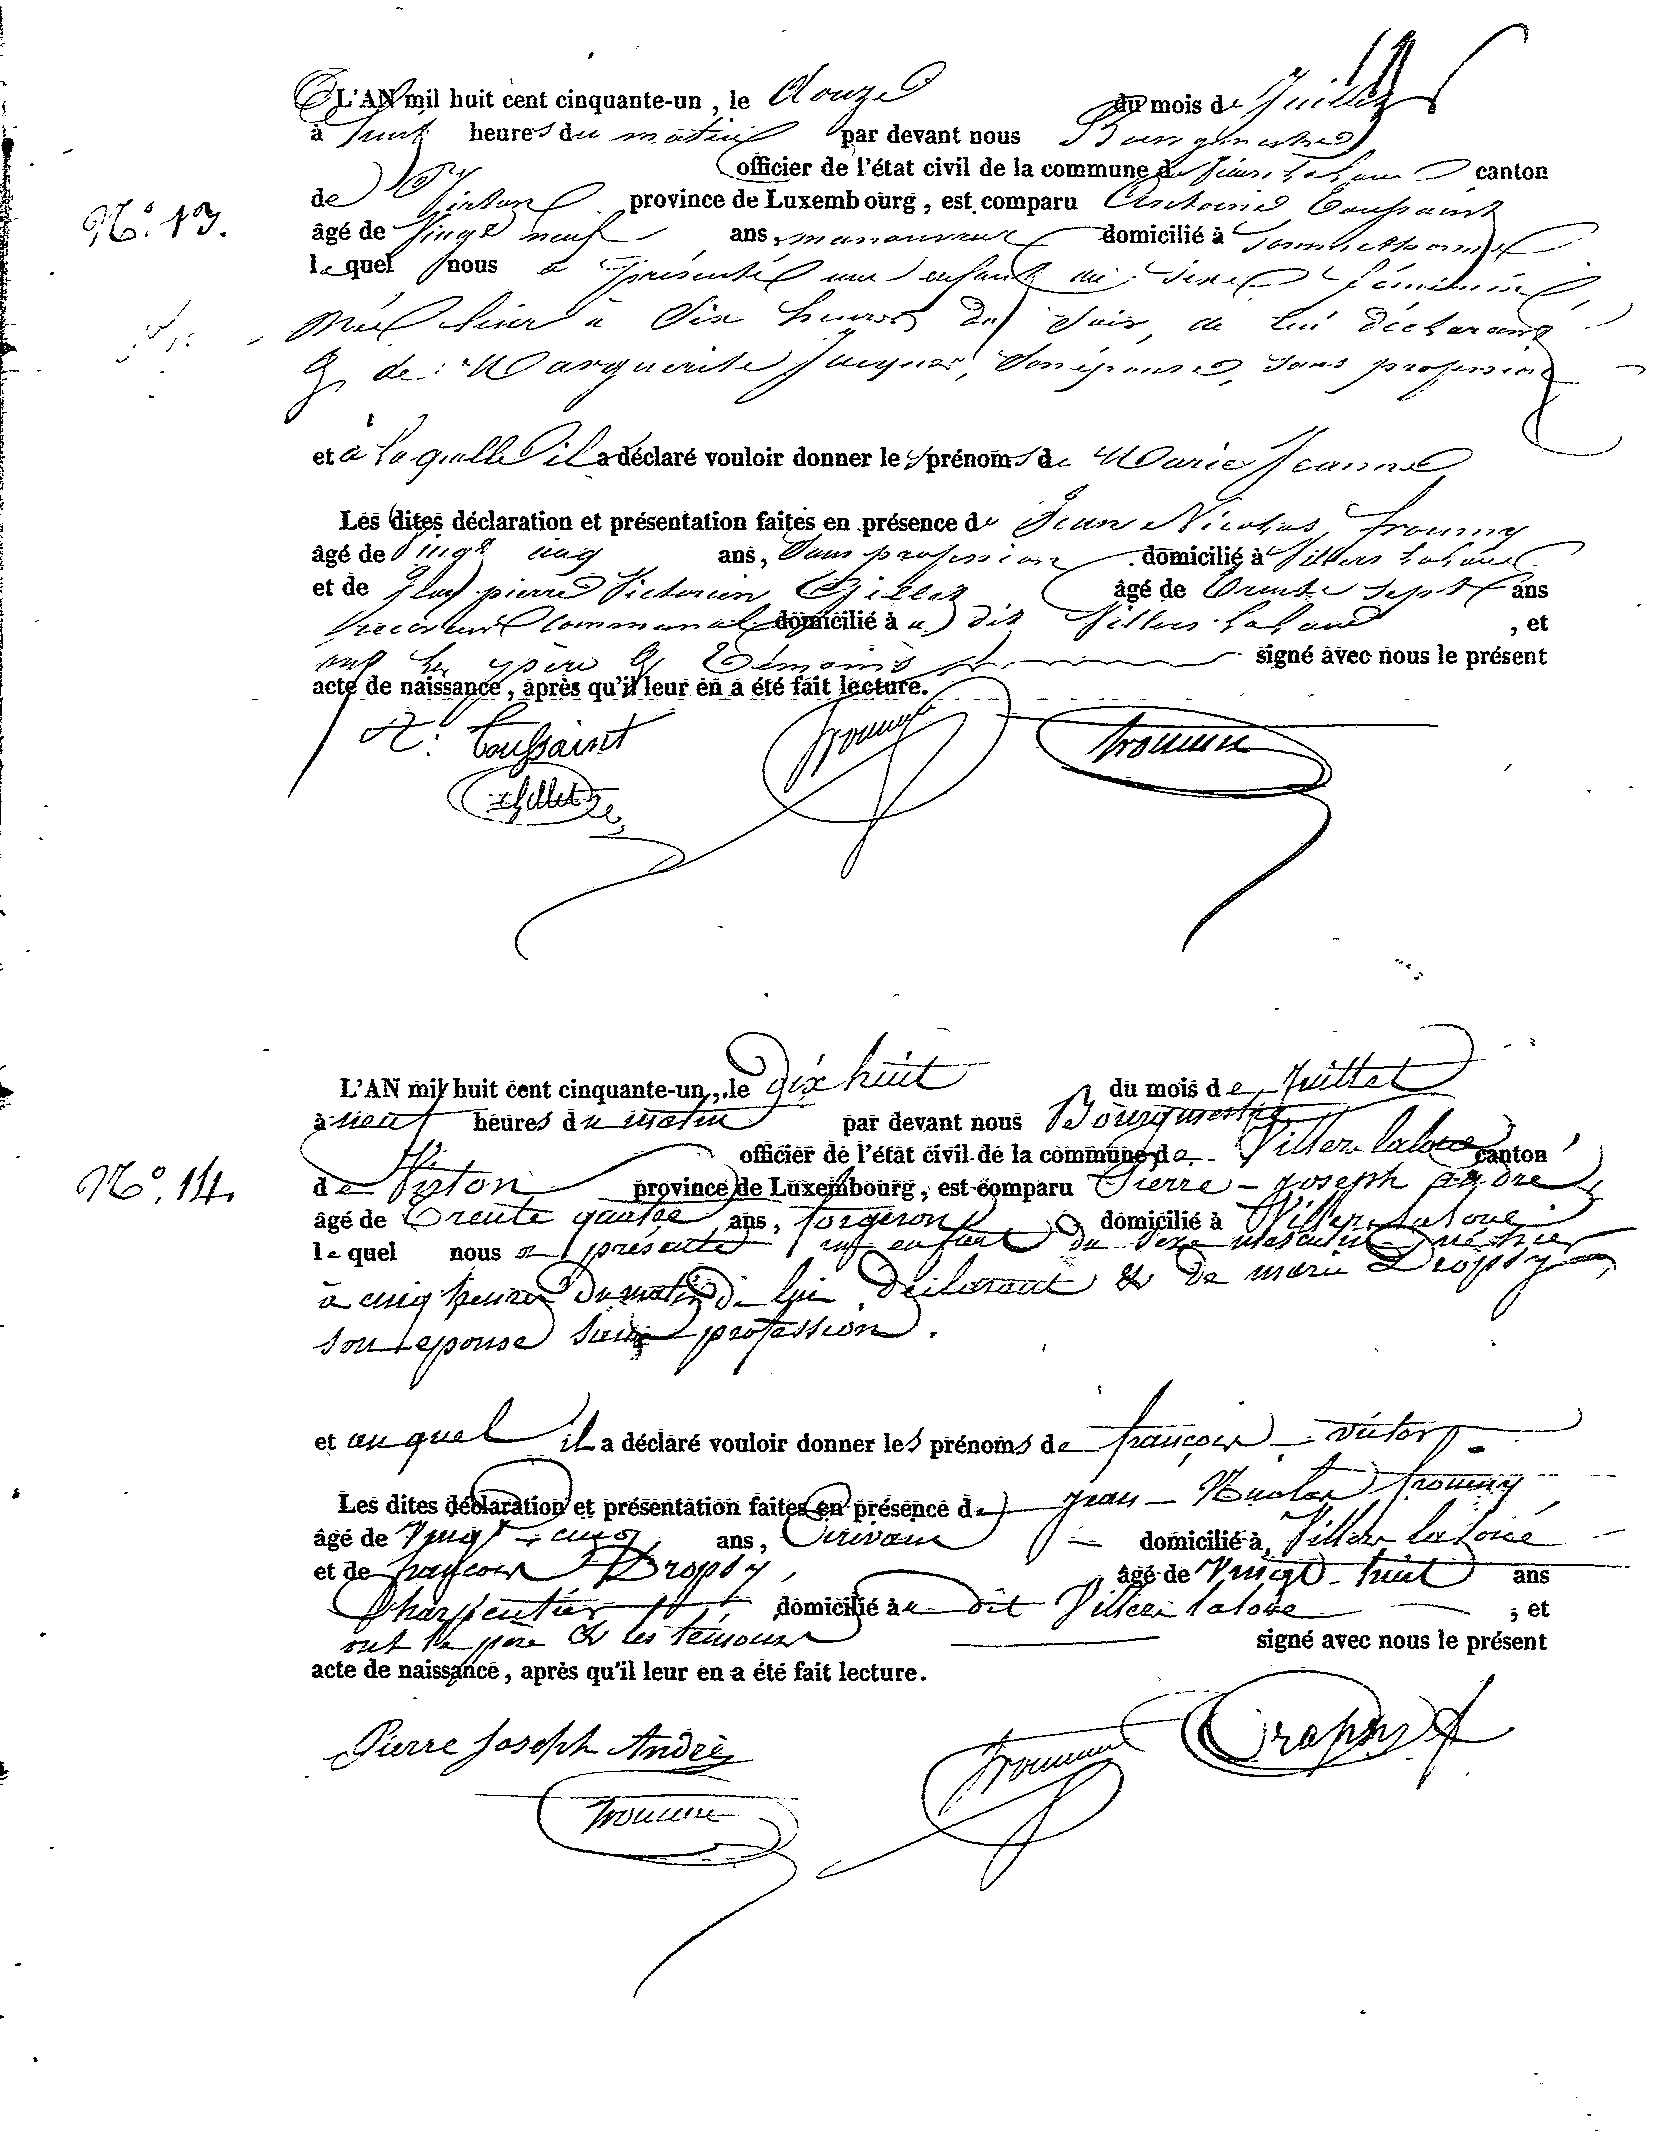 L'AN mil huit cent cinquante-un, le douze du mois de Juillet
à huit heures du matin par devant nous Bourgmestre
officier de l'état civil de la commune de Villers-la-loue canton
de Virton province de Luxembourg, est comparu Antoine Toussaint
N.° 13.
âgé de vingt neuf ans, manoeuvre domicilié à Sommethonne
lequel nous a présenté un enfant du sexe féminin,
née hier à dix heures du soir, de lui déclarant
& de Marguerite Jacques, son épouse, sans profession
et à laquelle il a déclaré vouloir donner les prénoms de Marie Jeanne
Les dites déclaration et présentation faites en présence de Jean Nicolas froumy
âgé de vingt cinq ans, sans profession domicilié à Villers laloue
et de pierre Victorien Gillet âgé de trente sept ans
receveur communal domicilié à u dit Villers-laloue, et
ont les père & témoins signé avec nous le présent
acte de naissance, après qu'il leur en a été fait lecture.
A. Toussaint froumy
Gillet
L'AN mil huit cent cinquante-un, le dix huit du mois de Juillet
à neuf heures du matin par devant nous Bourgmestre
officier de l'état civil de la commune de Villers laloue canton
N.° 14.
de Virton province de Luxembourg, est comparu Pierre-joseph andre
âgé de trente quatre ans, forgeron domicilié à Villers laloue
lequel nous a présenté un enfant du sexe masculin né hier
à cinq heures du matin de lui déclarant & de marie Dropsy
son epouse sans profession.
et au quel il a déclaré vouloir donner les prénoms de françois-victor.
Les dites déclaration et présentation faites en présence de jean-Nicolas froumy
âgé de vingt-cinq ans, Ecrivain domicilié à Villers laloue
et de françois Dropsy, âgé de vingt-huit ans
Charpentier domicilié à u dit Villers laloue, et
ont le père & les témoins signé avec nous le présent
acte de naissance, après qu'il leur en a été fait lecture.
Pierre Joseph André froumy Dropsy